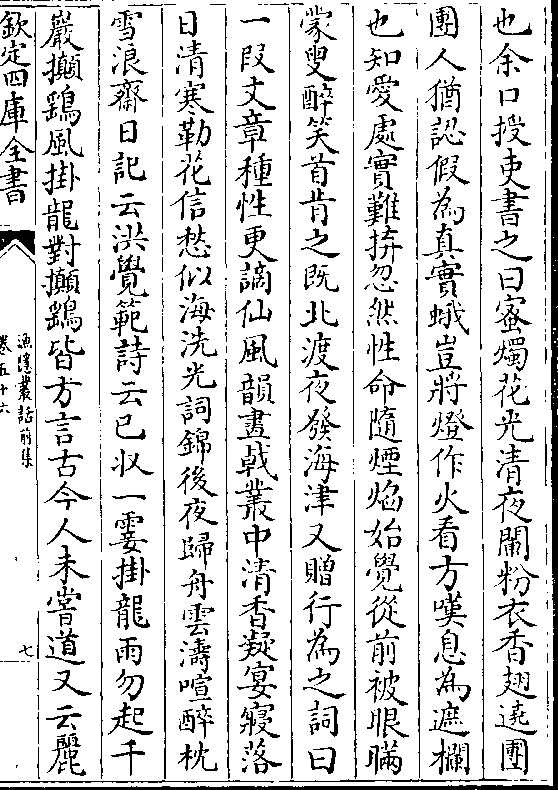 也余口授吏書之曰蜜燭花光清夜闌粉衣香翅遶團
團人猶認假為真實蛾豈將燈作火看方嘆息為遮欄
也知愛處實難拚忽然性命隨煙焰始覺從前被眼瞞
蒙叟醉笑首肯之既北渡夜發海津又贈行為之詞曰
一段文章種性更謫仙風韻畫㦸叢中清香凝宴寢落
日清寒勒花信愁似海洗光詞錦後夜歸舟雲濤喧醉枕
雪浪齋日記云洪覺範詩云已收一霎掛龍雨勿起千
巖攧鷂風掛龍對攧鷂皆方言古今人未嘗道又云麗
欽定四庫全書
漁隱叢話前集
卷五十六
七